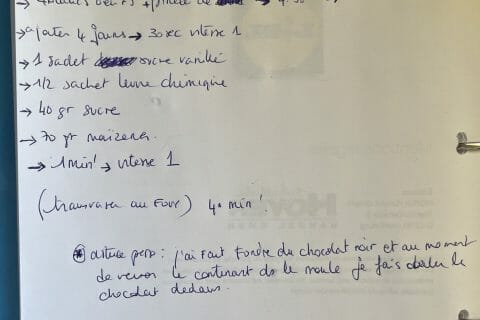 → ajouter 4 jaunes → 30 sec vitesse 1
→ 1 sachet sucre vanillé
→ 1/2 sachet levure chimique
→ 40 gr sucre
→ 70 gr maizena
→ 1 min → vitesse 1
(transvaser au Four) 40 min
* astuce perso : j'ai fait fondre du chocolat noir et au moment
de verser le contenant ds le moule je fais couler le
chocolat dedans.